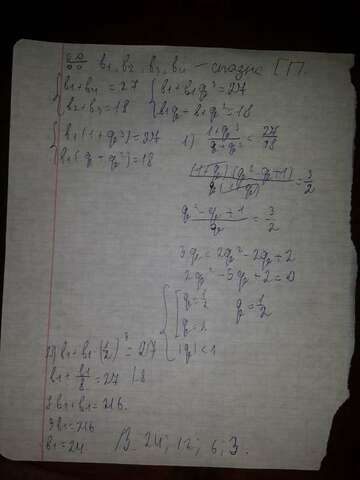 b₁, b₂, b₃, b₄ —
{ b₁+b₄ = 27
b₂+b₃ = 18
{ b₁+b₁q³ = 27
b₁q+b₁q² = 18
{ b₁(1+q³) = 27
b₁(q+q²) = 18
1) 1+q³ / q+q² = 27/18
(1+q)(q²-q+1) / q(1+q) = 3/2
q²-q+1 / q = 3/2
3q = 2q²-2q+2
2q²-5q+2 = 0
{ [ q = 1/2
q = 2
|q| < 1
q = 1/2
2) b₁+b₁·(1/2)³ = 27
b₁ + b₁/8 = 27 |8
8b₁+b₁ = 216
9b₁ = 216
b₁ = 24
24; 12; 6; 3.